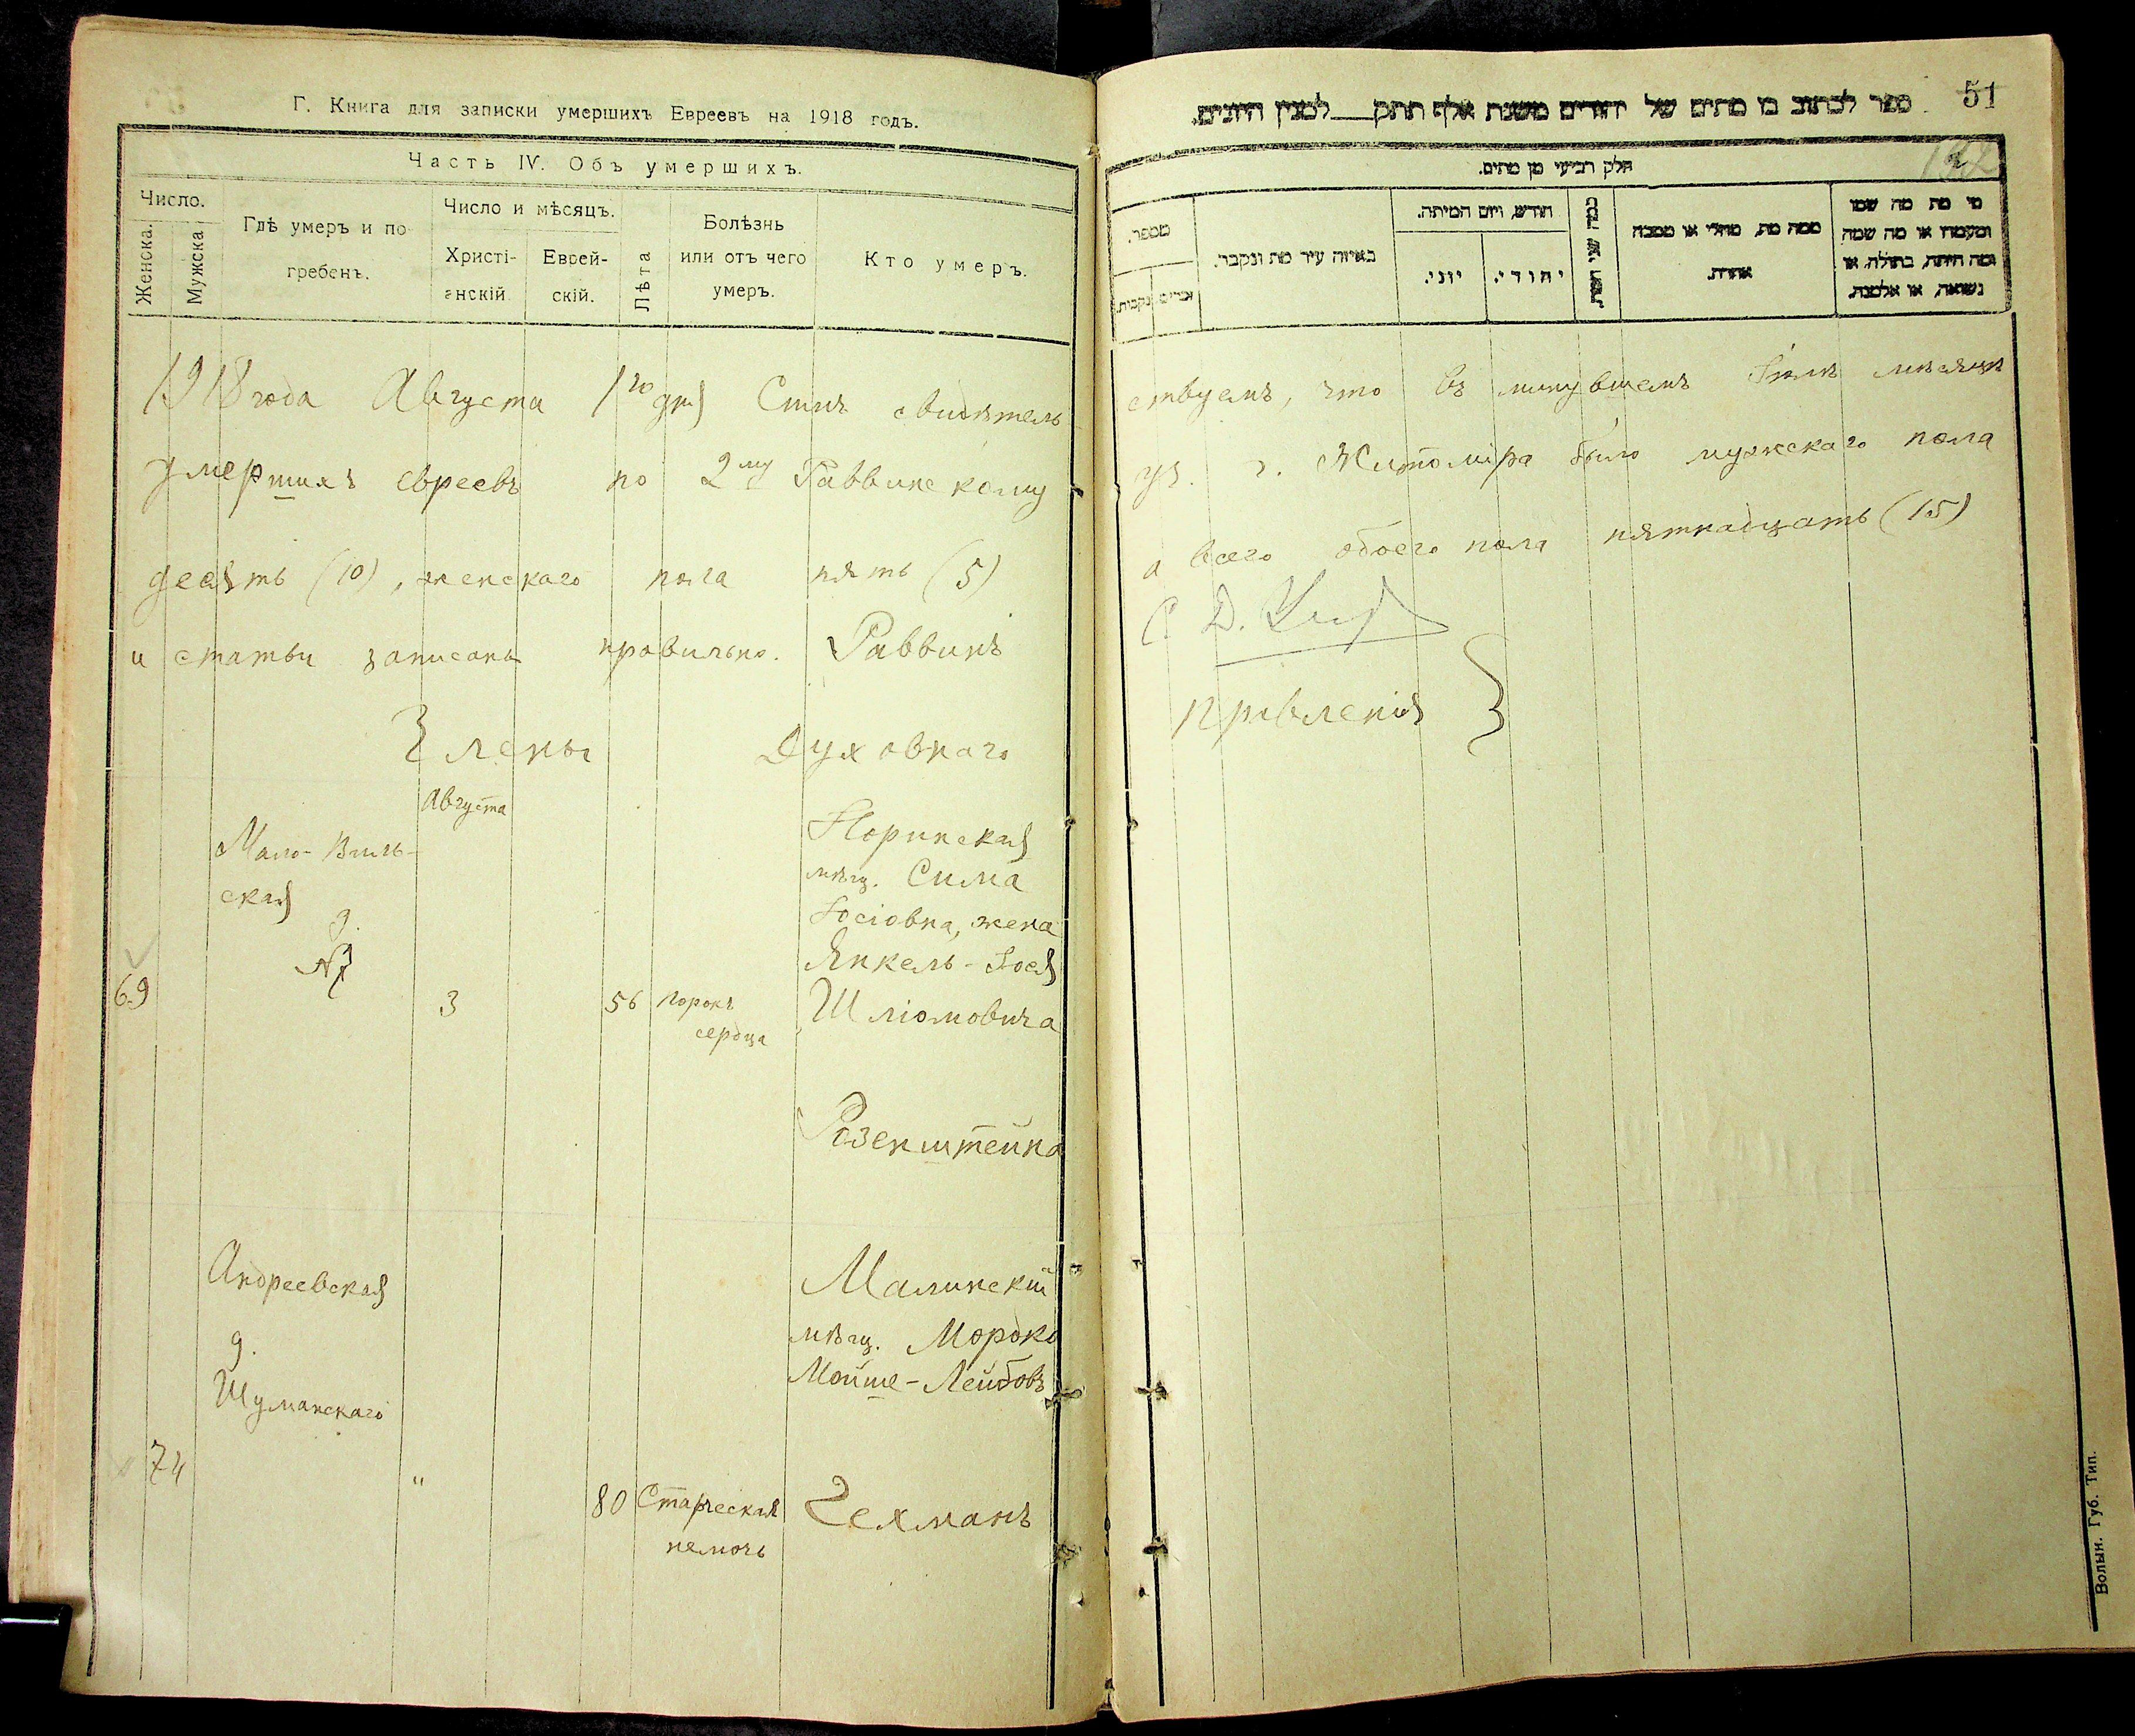 Г. Книга для записки умершихъ Евреевъ на 1918 годъ.
Часть IV. Объ умершихъ.
Число.
Женска.
Мужска
Гдѣ умеръ и по
гребенъ.
Число и мѣсяцъ.
Христі-
анскій
Еврей-
скій.
Лѣта
Болѣзнь
или отъ чего
умеръ.
Кто умеръ.
1918 года Августа 1го дня Симъ свидѣтель
умершихъ евреевъ по 2му Раввинскому
десять (10), женскаго пола пять (5)
и статьи записаны правильно. Раввинъ
Члены Духовнаго
Августа
Мало-Виль-
ская
д.
№7
69
3
56
порокъ
сердца
Норинская
мѣщ. Сима
Іосіовна, жена
Янкель-Іося
Шліомовича
Розенштейна
Андреевская
д.
Шуманскаго
74
"
80
Старческая
немочь
Малинскій
мѣщ. Мордко
Мойше-Лейбовъ
Гехманъ
51
ספר לכתוב בו מתים של יהודים משנת אלף תתק___למנין היונים.
חלק רביעי מן מתים.
מספר.
זכרים
נקבות.
באיזה עיר מת ונקבר.
חודש, ויום המיתה.
יוני.
יהודי.
כמה שני חיותו.
ממה מת, מחלי או מסבה
אחרת.
מי מת מה שמו
ומעמדו או מה שמה
ומה היתה, בתולה, או
נשואה, או אלמנה.
ствуемъ, что въ минувшемъ Іюлѣ мѣсяцѣ
уч. г. Житоміра было мужскаго пола
а всего обоего пола пятнадцать (15)
С. Д.
правленія }
Волын. Губ. Тип.